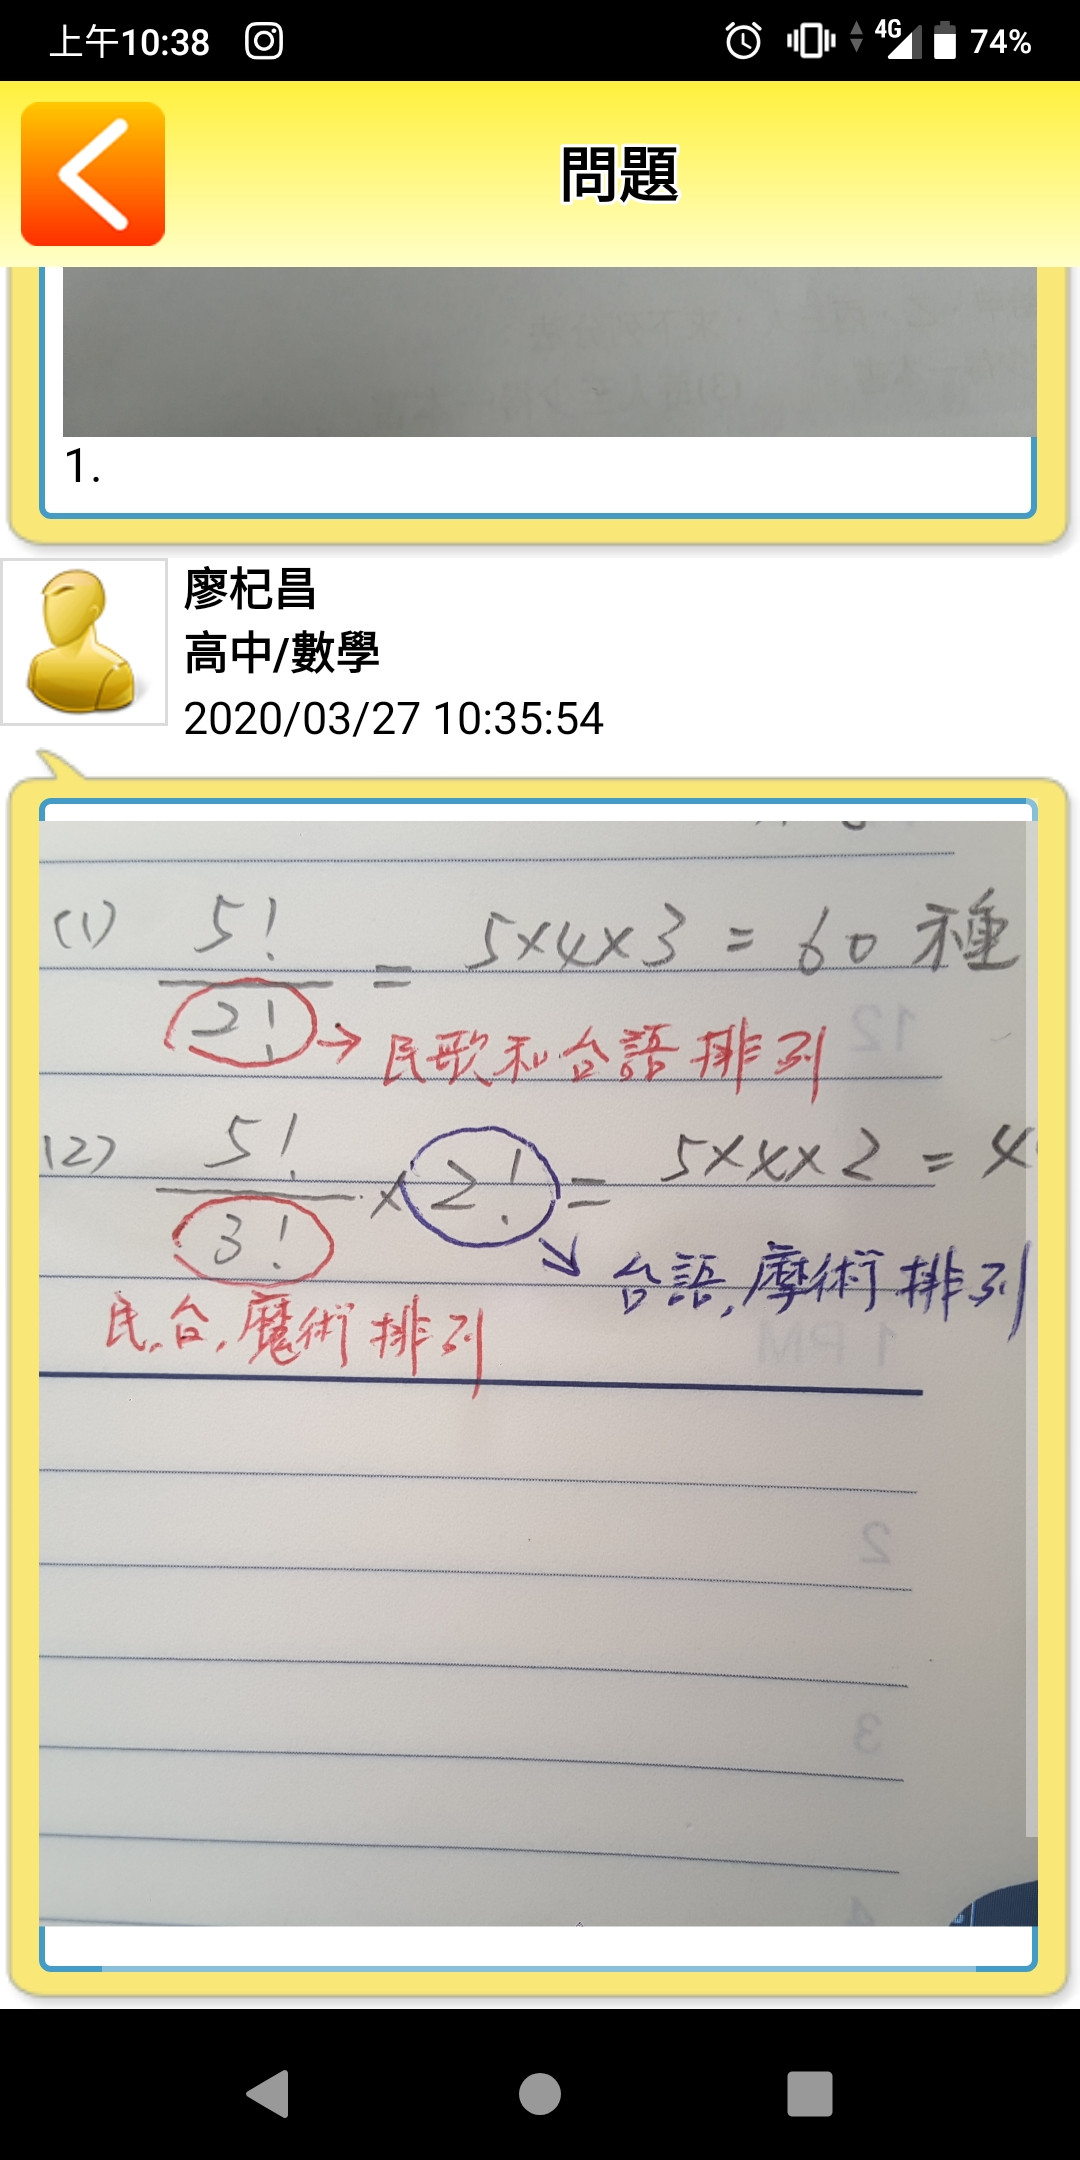 上午10:38
4G 74%
問題
1.
廖杞昌
高中/數學
2020/03/27 10:35:54
(1) 5!/2! = 5×4×3 = 60 種
→ 民歌和台語排列
(2) 5!/3! × 2! = 5×4×2 = 4
台語,摩術排列
民,台,魔術排列